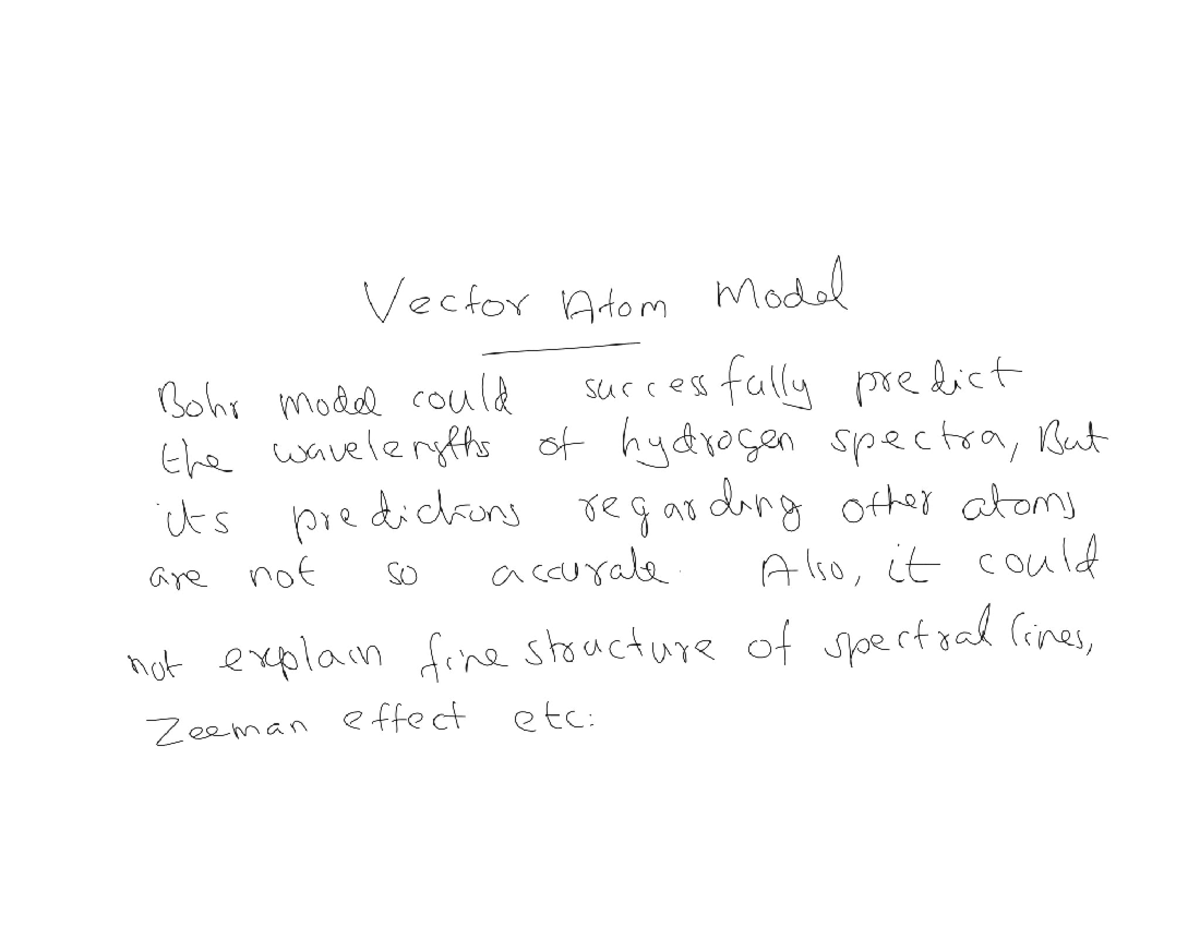 Vector Atom Model
Bohr model could successfully predict
the wavelengths of hydrogen spectra, But
its predictions regarding other atoms
are not so accurate. Also, it could
not explain fine structure of spectral lines,
Zeeman effect etc.